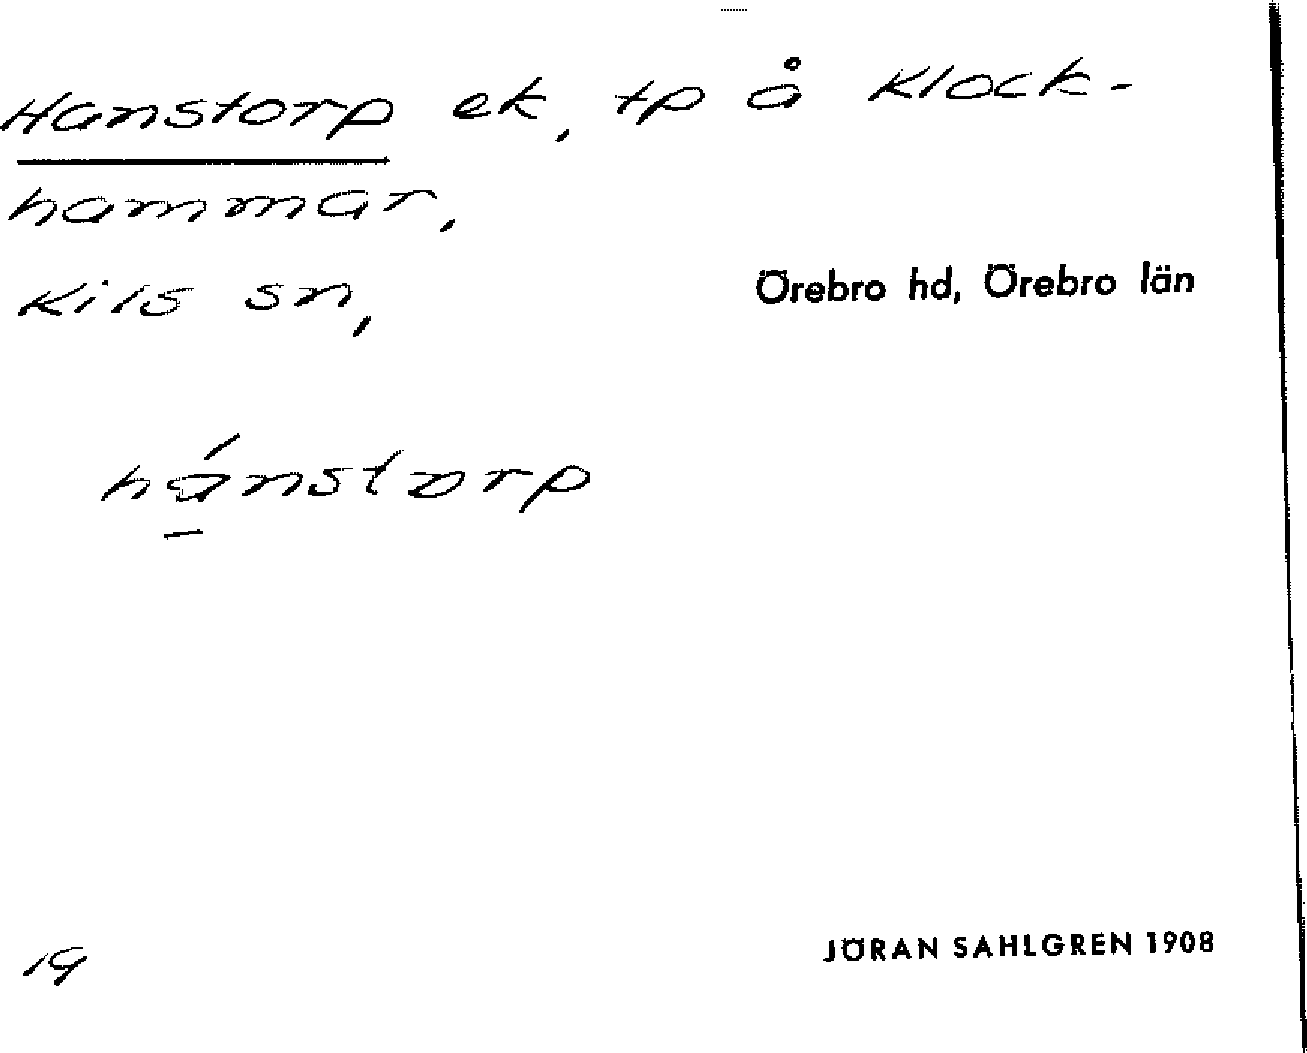 Hanstorp ek, tp å Klock-
hammar,
Kils sn,
Örebro hd, Örebro län
hánstorp
19
JÖRAN SAHLGREN 1908